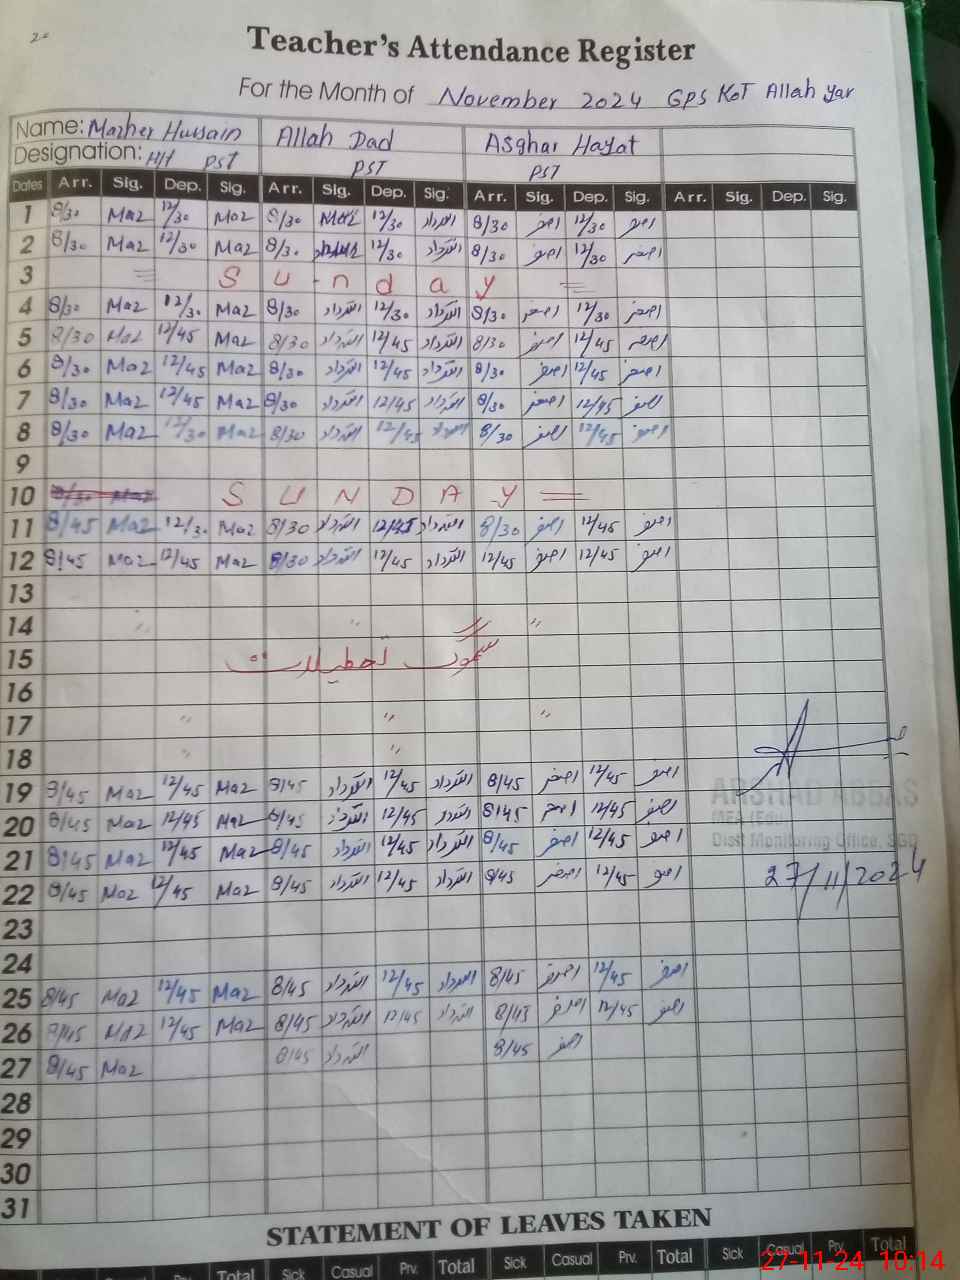 Teacher's Attendance Register
For the Month of November 2024 GPS KOT Allah Yar
Name: Mazher Hussain Allah Dad Asghar Hayat
Designation: H/T PST PST PST
Dates Arr. Sig. Dep. Sig. Arr. Sig. Dep. Sig. Arr. Sig. Dep. Sig. Arr. Sig. Dep. Sig.
1 8/30 Maz 12/30 Maz 8/30 12/30 اللہ داد 8/30 اصغر 12/30 اصغر
2 8/30 Maz 12/30 Maz 8/30 12/30 اللہ داد 8/30 اصغر 12/30 اصغر
3 Sunday
4 8/30 Maz 12/30 Maz 8/30 اللہ داد 12/30 اللہ داد 8/30 اصغر 12/30 اصغر
5 8/30 Maz 12/45 Maz 8/30 اللہ داد 12/45 اللہ داد 8/30 اصغر 12/45 اصغر
6 8/30 Maz 12/45 Maz 8/30 اللہ داد 12/45 اللہ داد 8/30 اصغر 12/45 اصغر
7 8/30 Maz 12/45 Maz 8/30 اللہ داد 12/45 اللہ داد 8/30 اصغر 12/45 اصغر
8 8/30 Maz 12/30 Maz 8/30 اللہ داد 12/45 اللہ داد 8/30 اصغر 12/45 اصغر
9
10 SUNDAY
11 8/45 Maz 12/30 Maz 8/30 اللہ داد 12/45 اللہ داد 8/30 اصغر 12/45 اصغر
12 8/45 Maz 12/45 Maz 8/30 اللہ داد 12/45 اللہ داد 12/45 اصغر 12/45 اصغر
13
14 " " "
15 سموگ تعطیلات
16
17 " " "
18 " "
19 8/45 Maz 12/45 Maz 8/45 اللہ داد 12/45 اللہ داد 8/45 اصغر 12/45 اصغر
ARSHAD ABBAS
20 8/45 Maz 12/45 Maz 8/45 اللہ داد 12/45 اللہ داد 8/45 اصغر 12/45 اصغر
MEA (Edu)
21 8/45 Maz 12/45 Maz 8/45 اللہ داد 12/45 اللہ داد 8/45 اصغر 12/45 اصغر
Distt Monitoring Office, SGD
22 8/45 Maz 12/45 Maz 8/45 اللہ داد 12/45 اللہ داد 8/45 اصغر 12/45 اصغر
27/11/2024
23
24
25 8/45 Maz 12/45 Maz 8/45 اللہ داد 12/45 اللہ داد 8/45 اصغر 12/45 اصغر
26 8/45 Maz 12/45 Maz 8/45 اللہ داد 12/45 اللہ داد 8/45 اصغر 12/45 اصغر
27 8/45 Maz 8/45 اللہ داد 8/45 اصغر
28
29
30
31
STATEMENT OF LEAVES TAKEN
Prv. Total Sick Casual Prv. Total Sick Casual Prv. Total Sick Casual Prv. Total
27-11-24 10:14